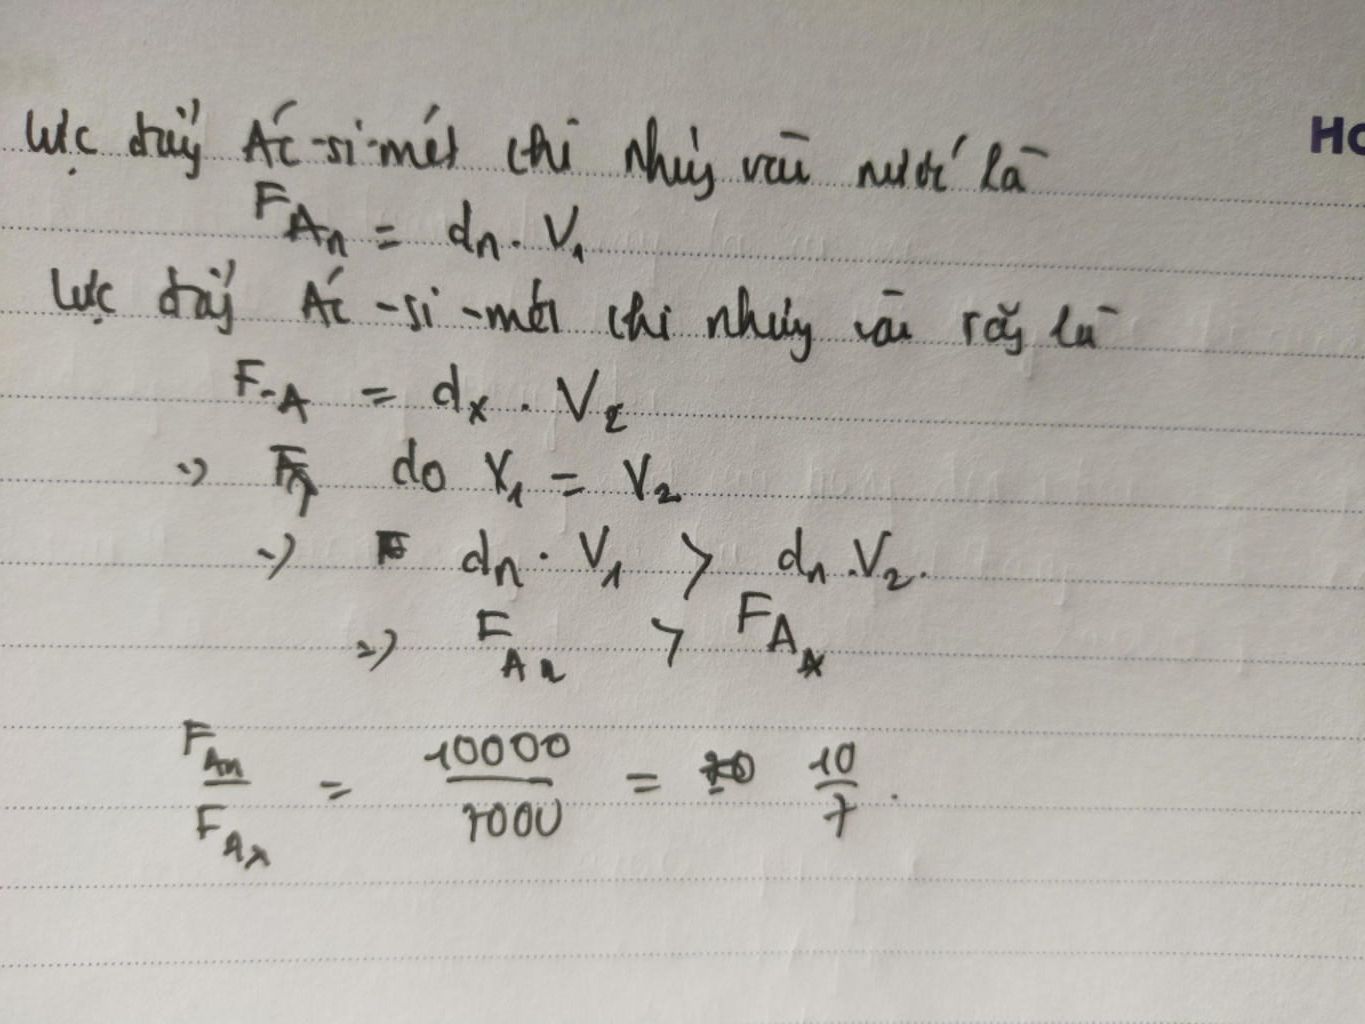 Lực đẩy Ác-si-mét khi nhúng vào nước là
Ho
F_An = dn. V1
Lực đẩy Ác-si-mét khi nhúng vào xăng là
F_A = dx . V2
=> do V1 = V2
=> dn. V1 > dn .V2.
=> F_An > F_Ax
F_An / F_Ax = 10000 / 7000 = 10 / 7 .